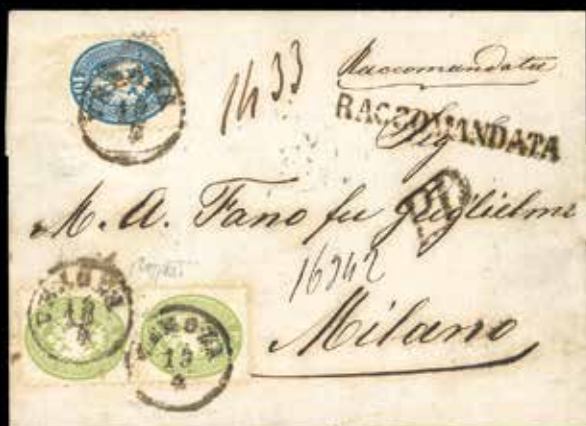 Raccomandata
1433
RACCOMANDATA
Sig
M. A. Fano fu Guglielmo
16942
Milano
VERONA
18
4
VERONA
18
4